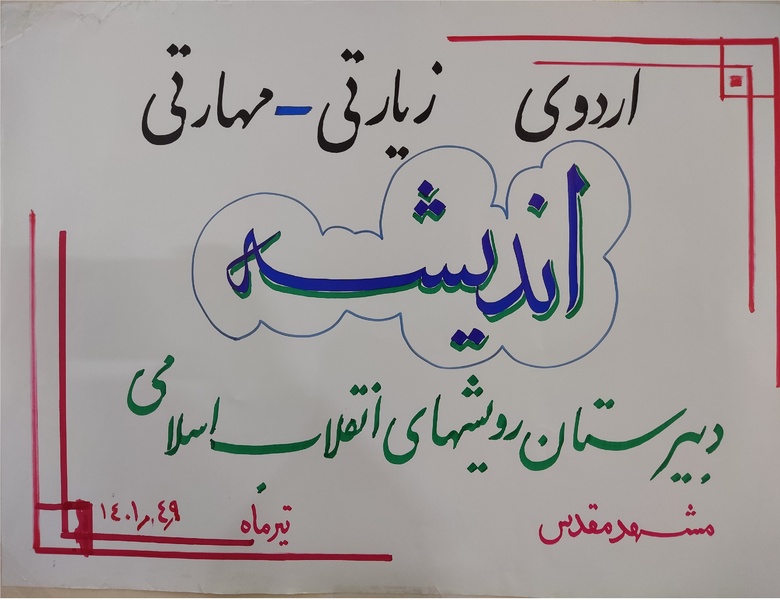 اردوی زیارتی - مهارتی
اندیشه
دبیرستان رویشهای انقلاب اسلامی
مشهد مقدس تیرماه ۱٤۰۱